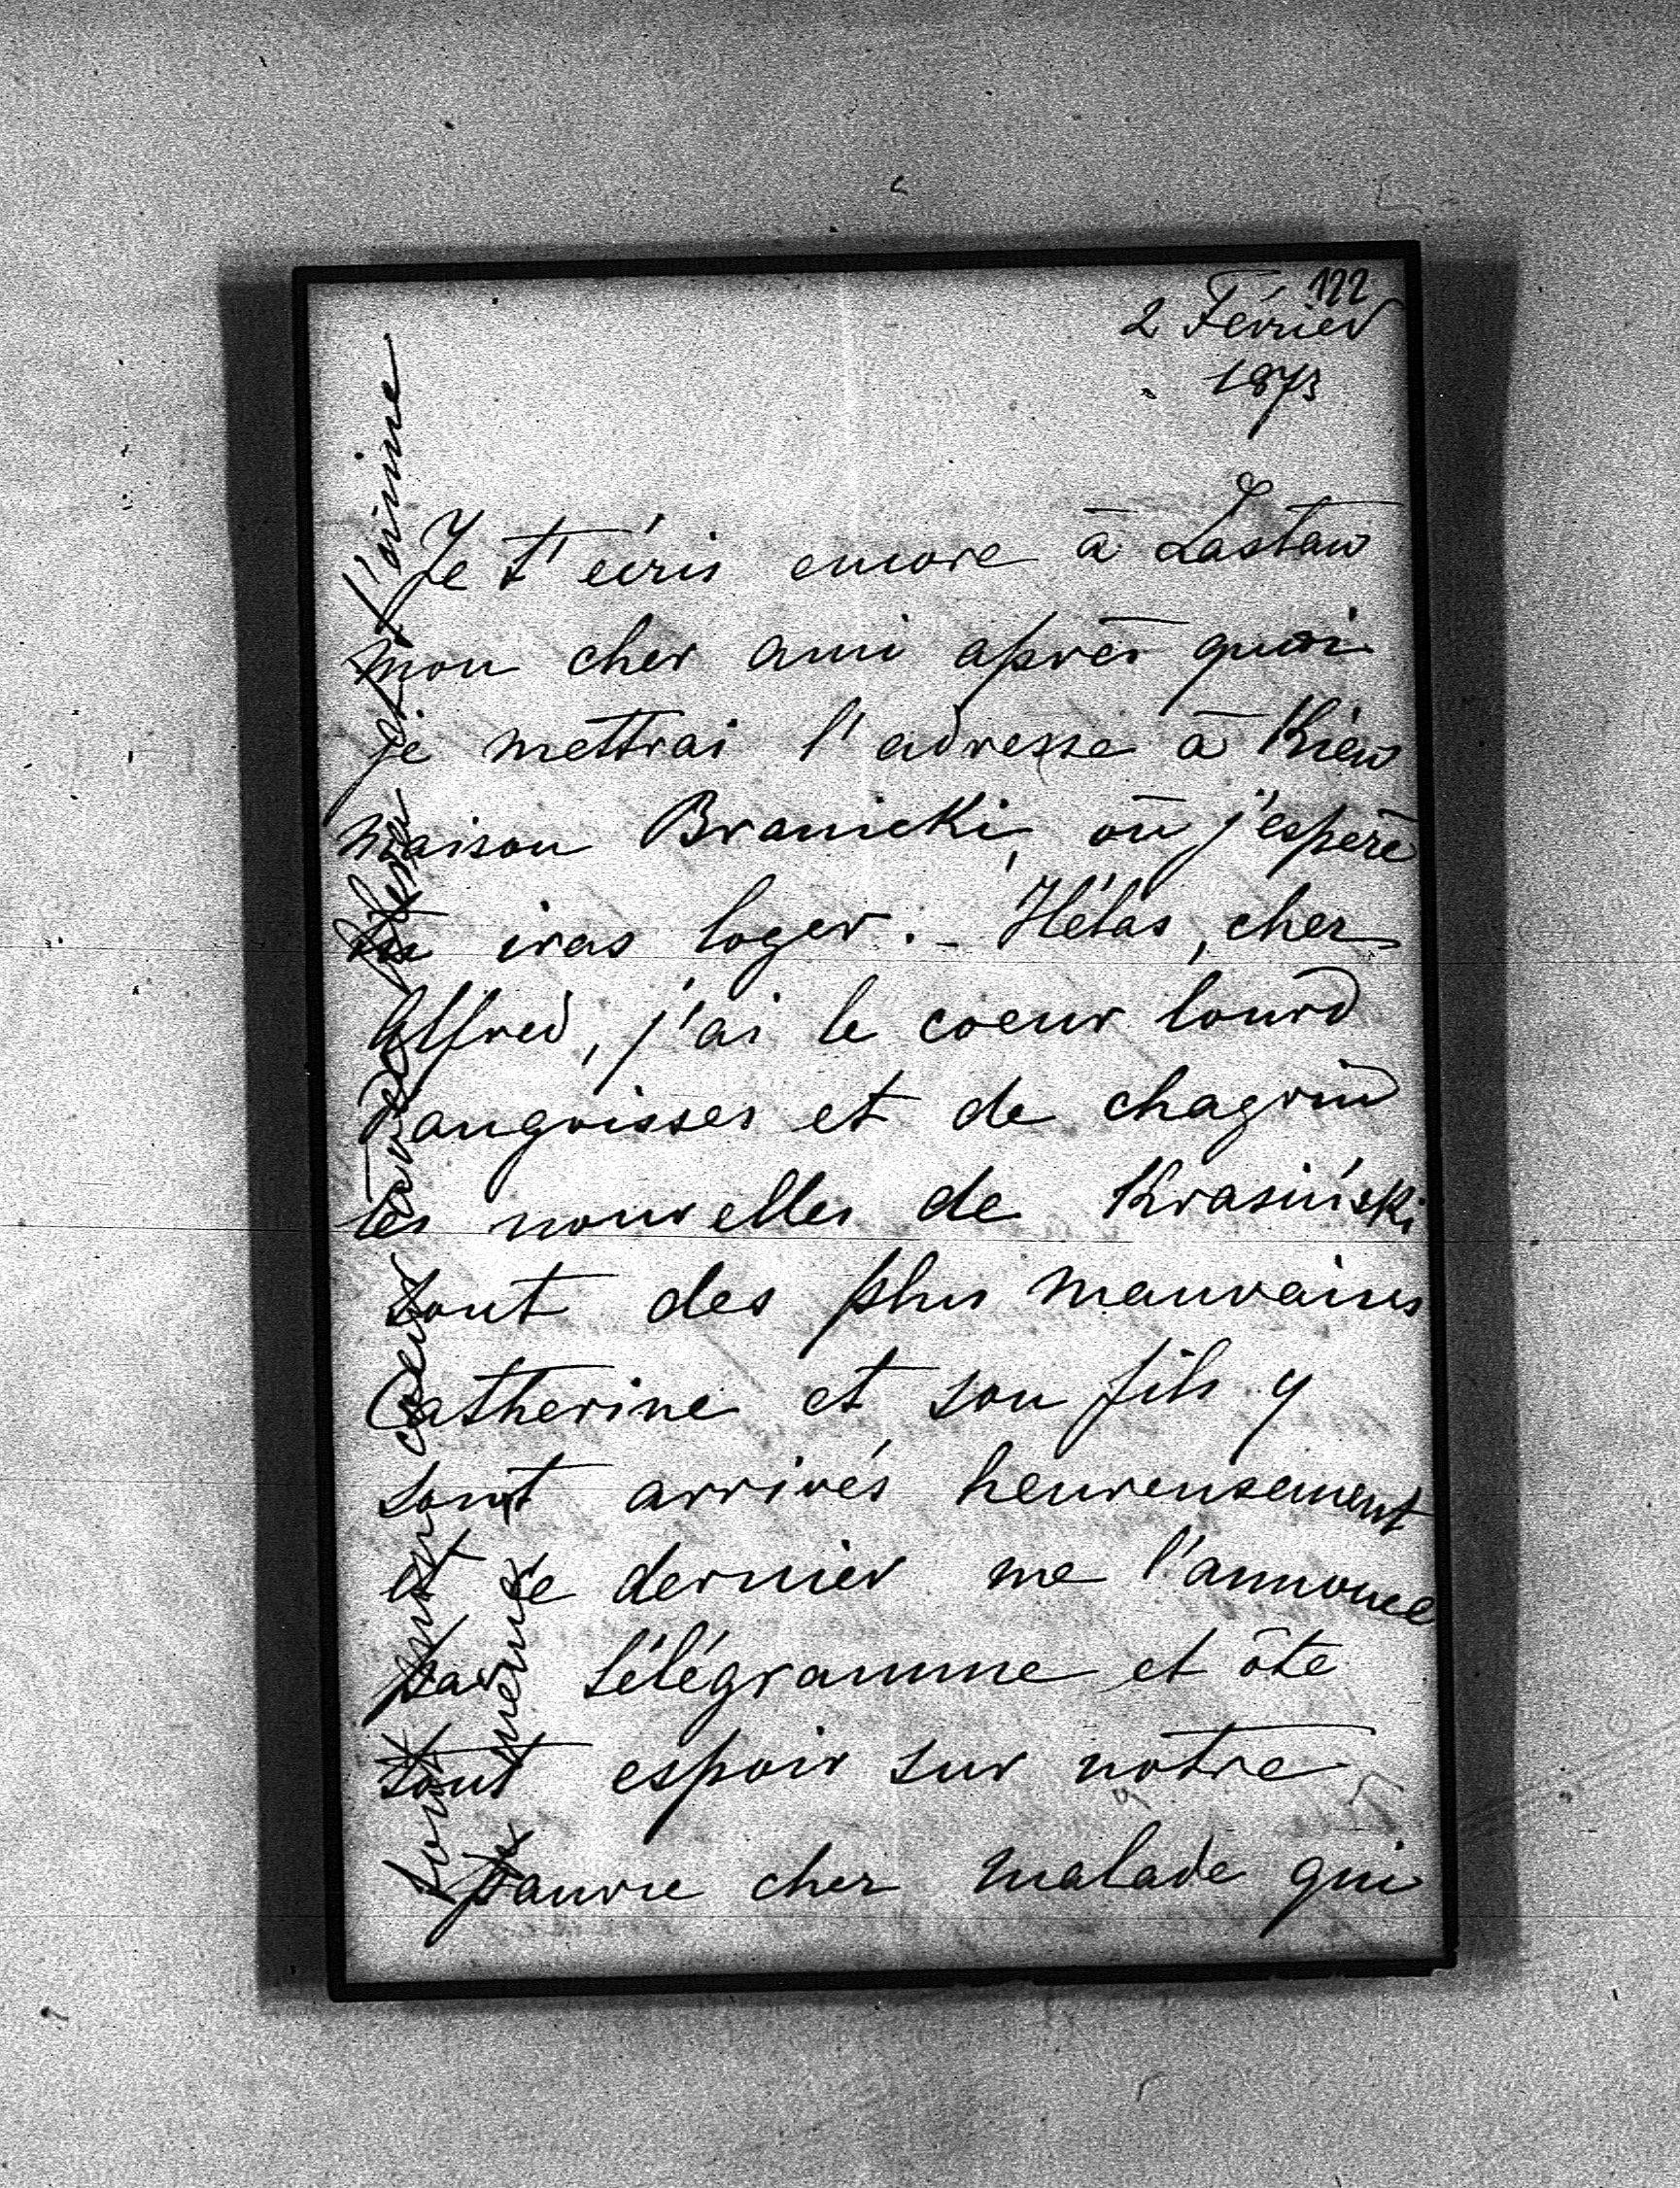 122
2 Février
1873
Je t'écris encore à Lastaw
mon cher ami après quoi
je mettrai l'adresse à Kiew
maison Branicki, où j'espère
tu iras loger. _ Hélas, cher
Alfred, j'ai le coeur lourd
d'angoisses et de chagrin
les nouvelles de Krasiński
sont des plus mauvaises
Catherine et son fils y
sont arrivés heureusement
et ce dernier me l'annonce
par télégramme et ôte
tout espoir sur notre
pauvre cher malade qui
coeur
et t'aime
même